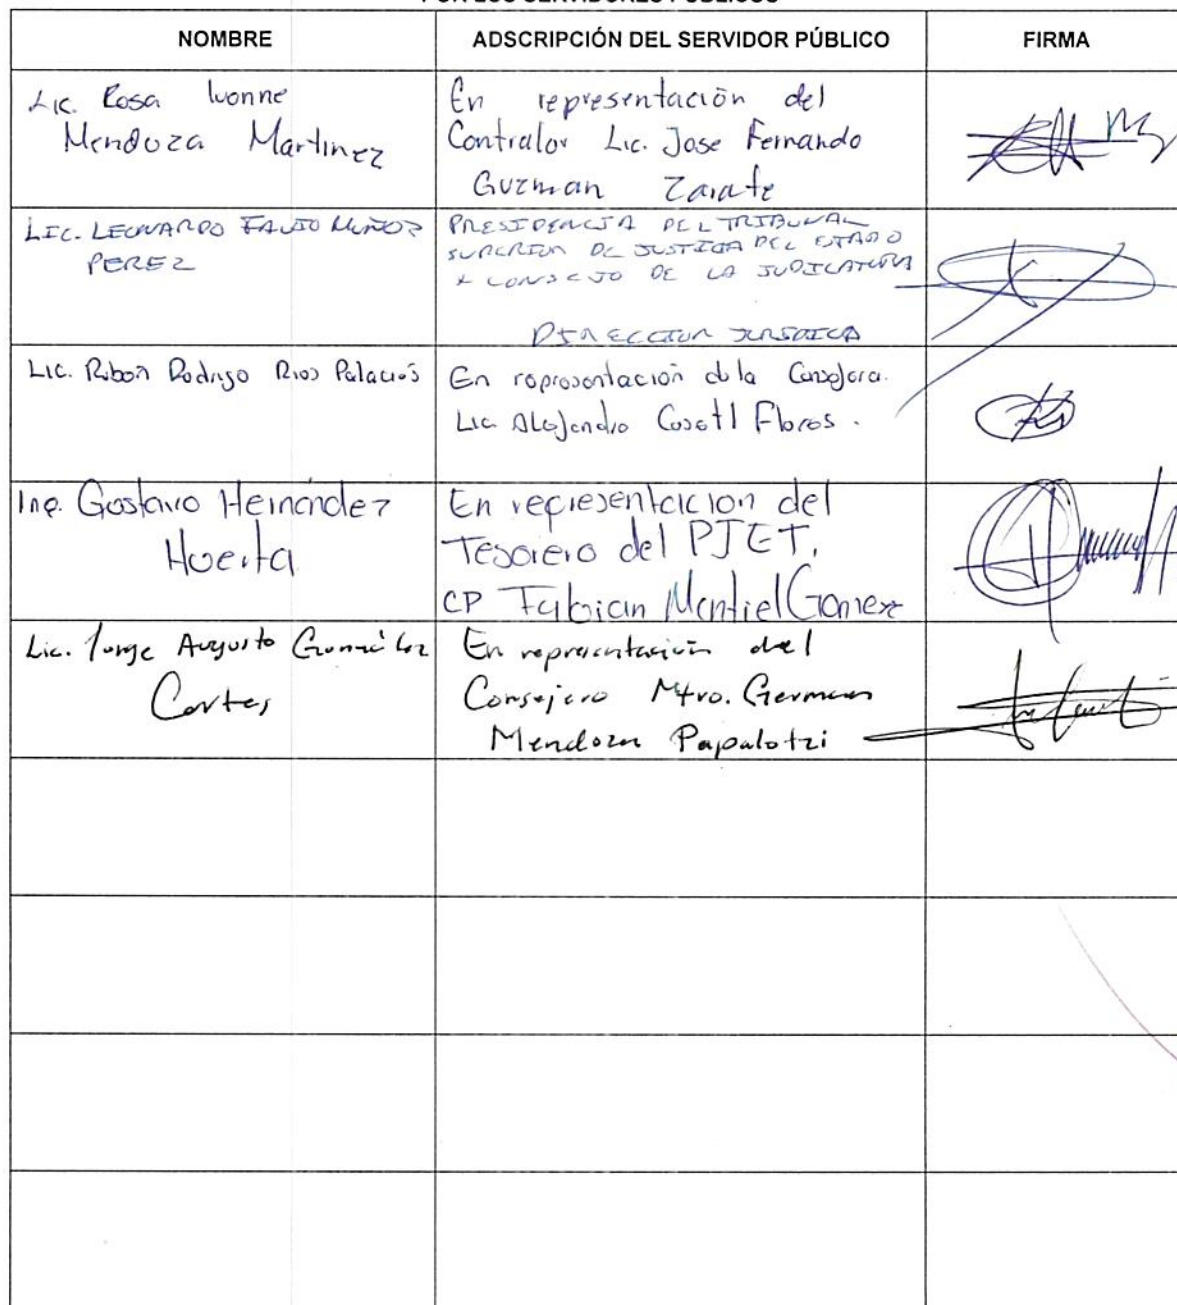 POR LOS SERVIDORES PÚBLICOS
NOMBRE
ADSCRIPCIÓN DEL SERVIDOR PÚBLICO
FIRMA
Lic. Rosa Ivonne
Mendoza Martinez
En representación del
Contralor Lic. Jose Fernando
Guzman Zarate
LIC. LEONARDO FAVIO MUÑOZ
PEREZ
PRESIDENCIA DEL TRIBUNAL
SUPERIOR DE JUSTICIA DEL ESTADO
Y CONSEJO DE LA JUDICATURA
DIRECCION JURIDICA
Lic. Rodrigo Rios Palacios
En representación de la Consejera.
Lic Flores.
Ing. Gustavo Hernández
Huerta
En representacion del
Tesorero del PJET,
CP Fabian Montiel Gomez
Lic. Jorge Augusto González
Cortes
En representación del
Consejero Mtro. German
Mendoza Papalotzi